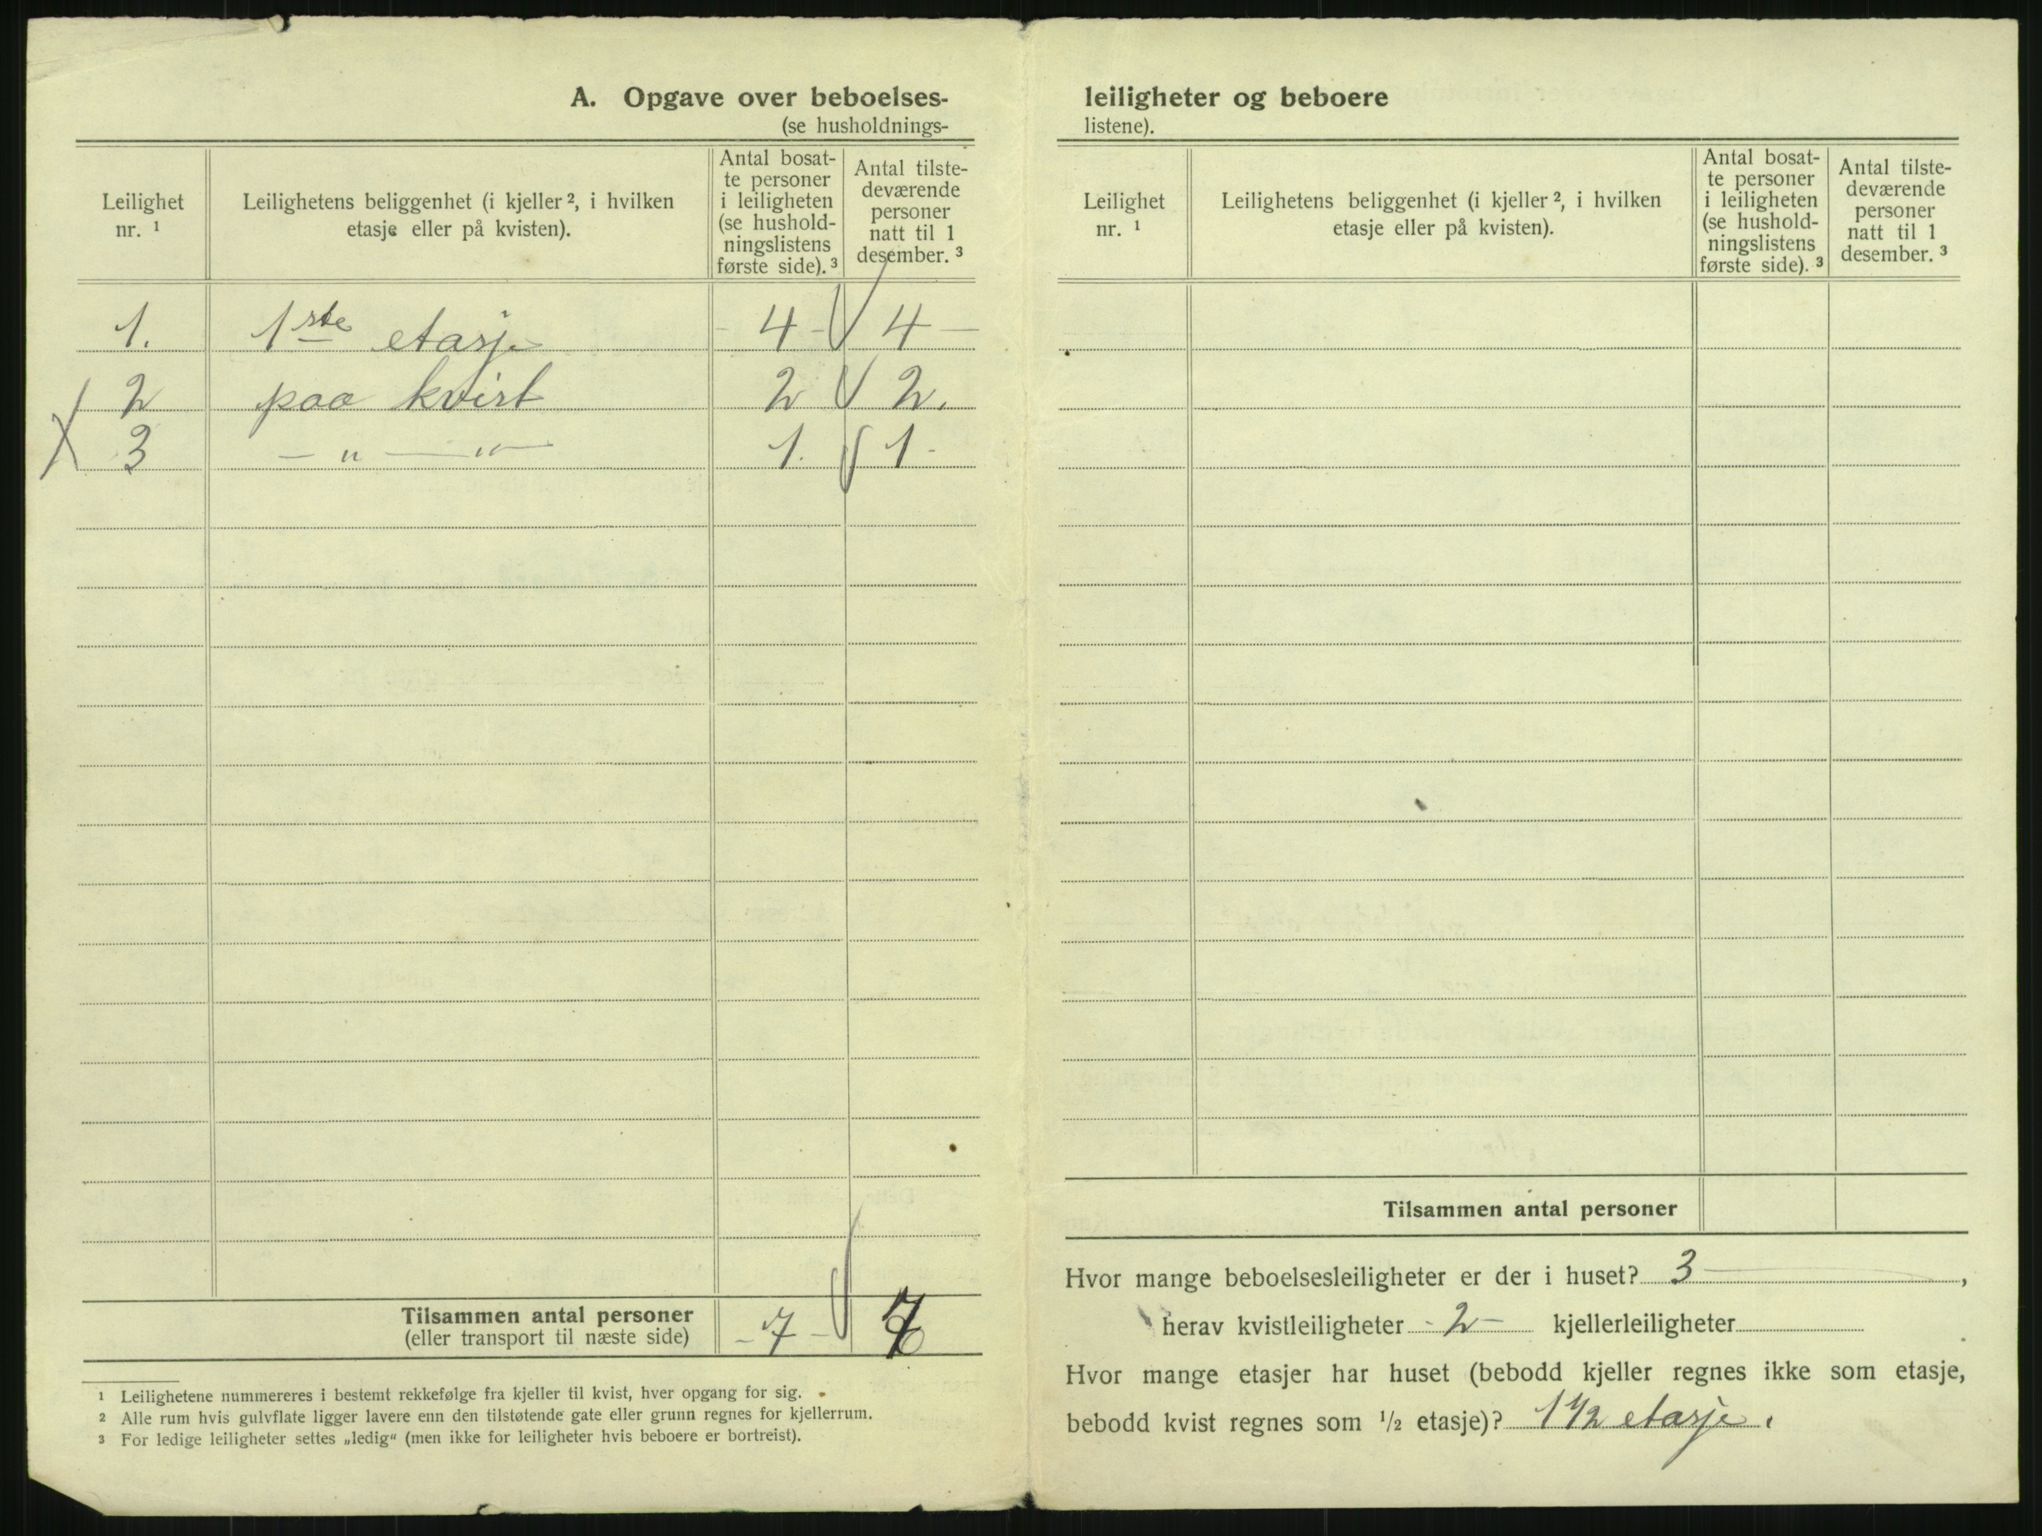 A. Opgave over beboelses-
(se husholdnings-
Leilighet
nr. ¹
Leilighetens beliggenhet (i kjeller ², i hvilken
etasje eller på kvisten).
Antal bosat-
te personer
i leiligheten
(se hushold-
ningslistens
første side). ³
Antal tilste-
deværende
personer
natt til 1
desember. ³
1. 1ste etasje - 4 - 4 -
2 paa kvist 2 2.
3 - " - " - 1. 1 -
Tilsammen antal personer
(eller transport til næste side)
- 7 - 7
¹ Leilighetene nummereres i bestemt rekkefølge fra kjeller til kvist, hver opgang for sig.
² Alle rum hvis gulvflate ligger lavere enn den tilstøtende gate eller grunn regnes for kjellerrum.
³ For ledige leiligheter settes „ledig“ (men ikke for leiligheter hvis beboere er bortreist).
leiligheter og beboere
listene).
Leilighet
nr. ¹
Leilighetens beliggenhet (i kjeller ², i hvilken
etasje eller på kvisten).
Antal bosat-
te personer
i leiligheten
(se hushold-
ningslistens
første side). ³
Antal tilste-
deværende
personer
natt til 1
desember. ³
Tilsammen antal personer
Hvor mange beboelsesleiligheter er der i huset? 3 - ,
herav kvistleiligheter - 2 - kjellerleiligheter
Hvor mange etasjer har huset (bebodd kjeller regnes ikke som etasje,
bebodd kvist regnes som ½ etasje)? 1 ½ etasje.